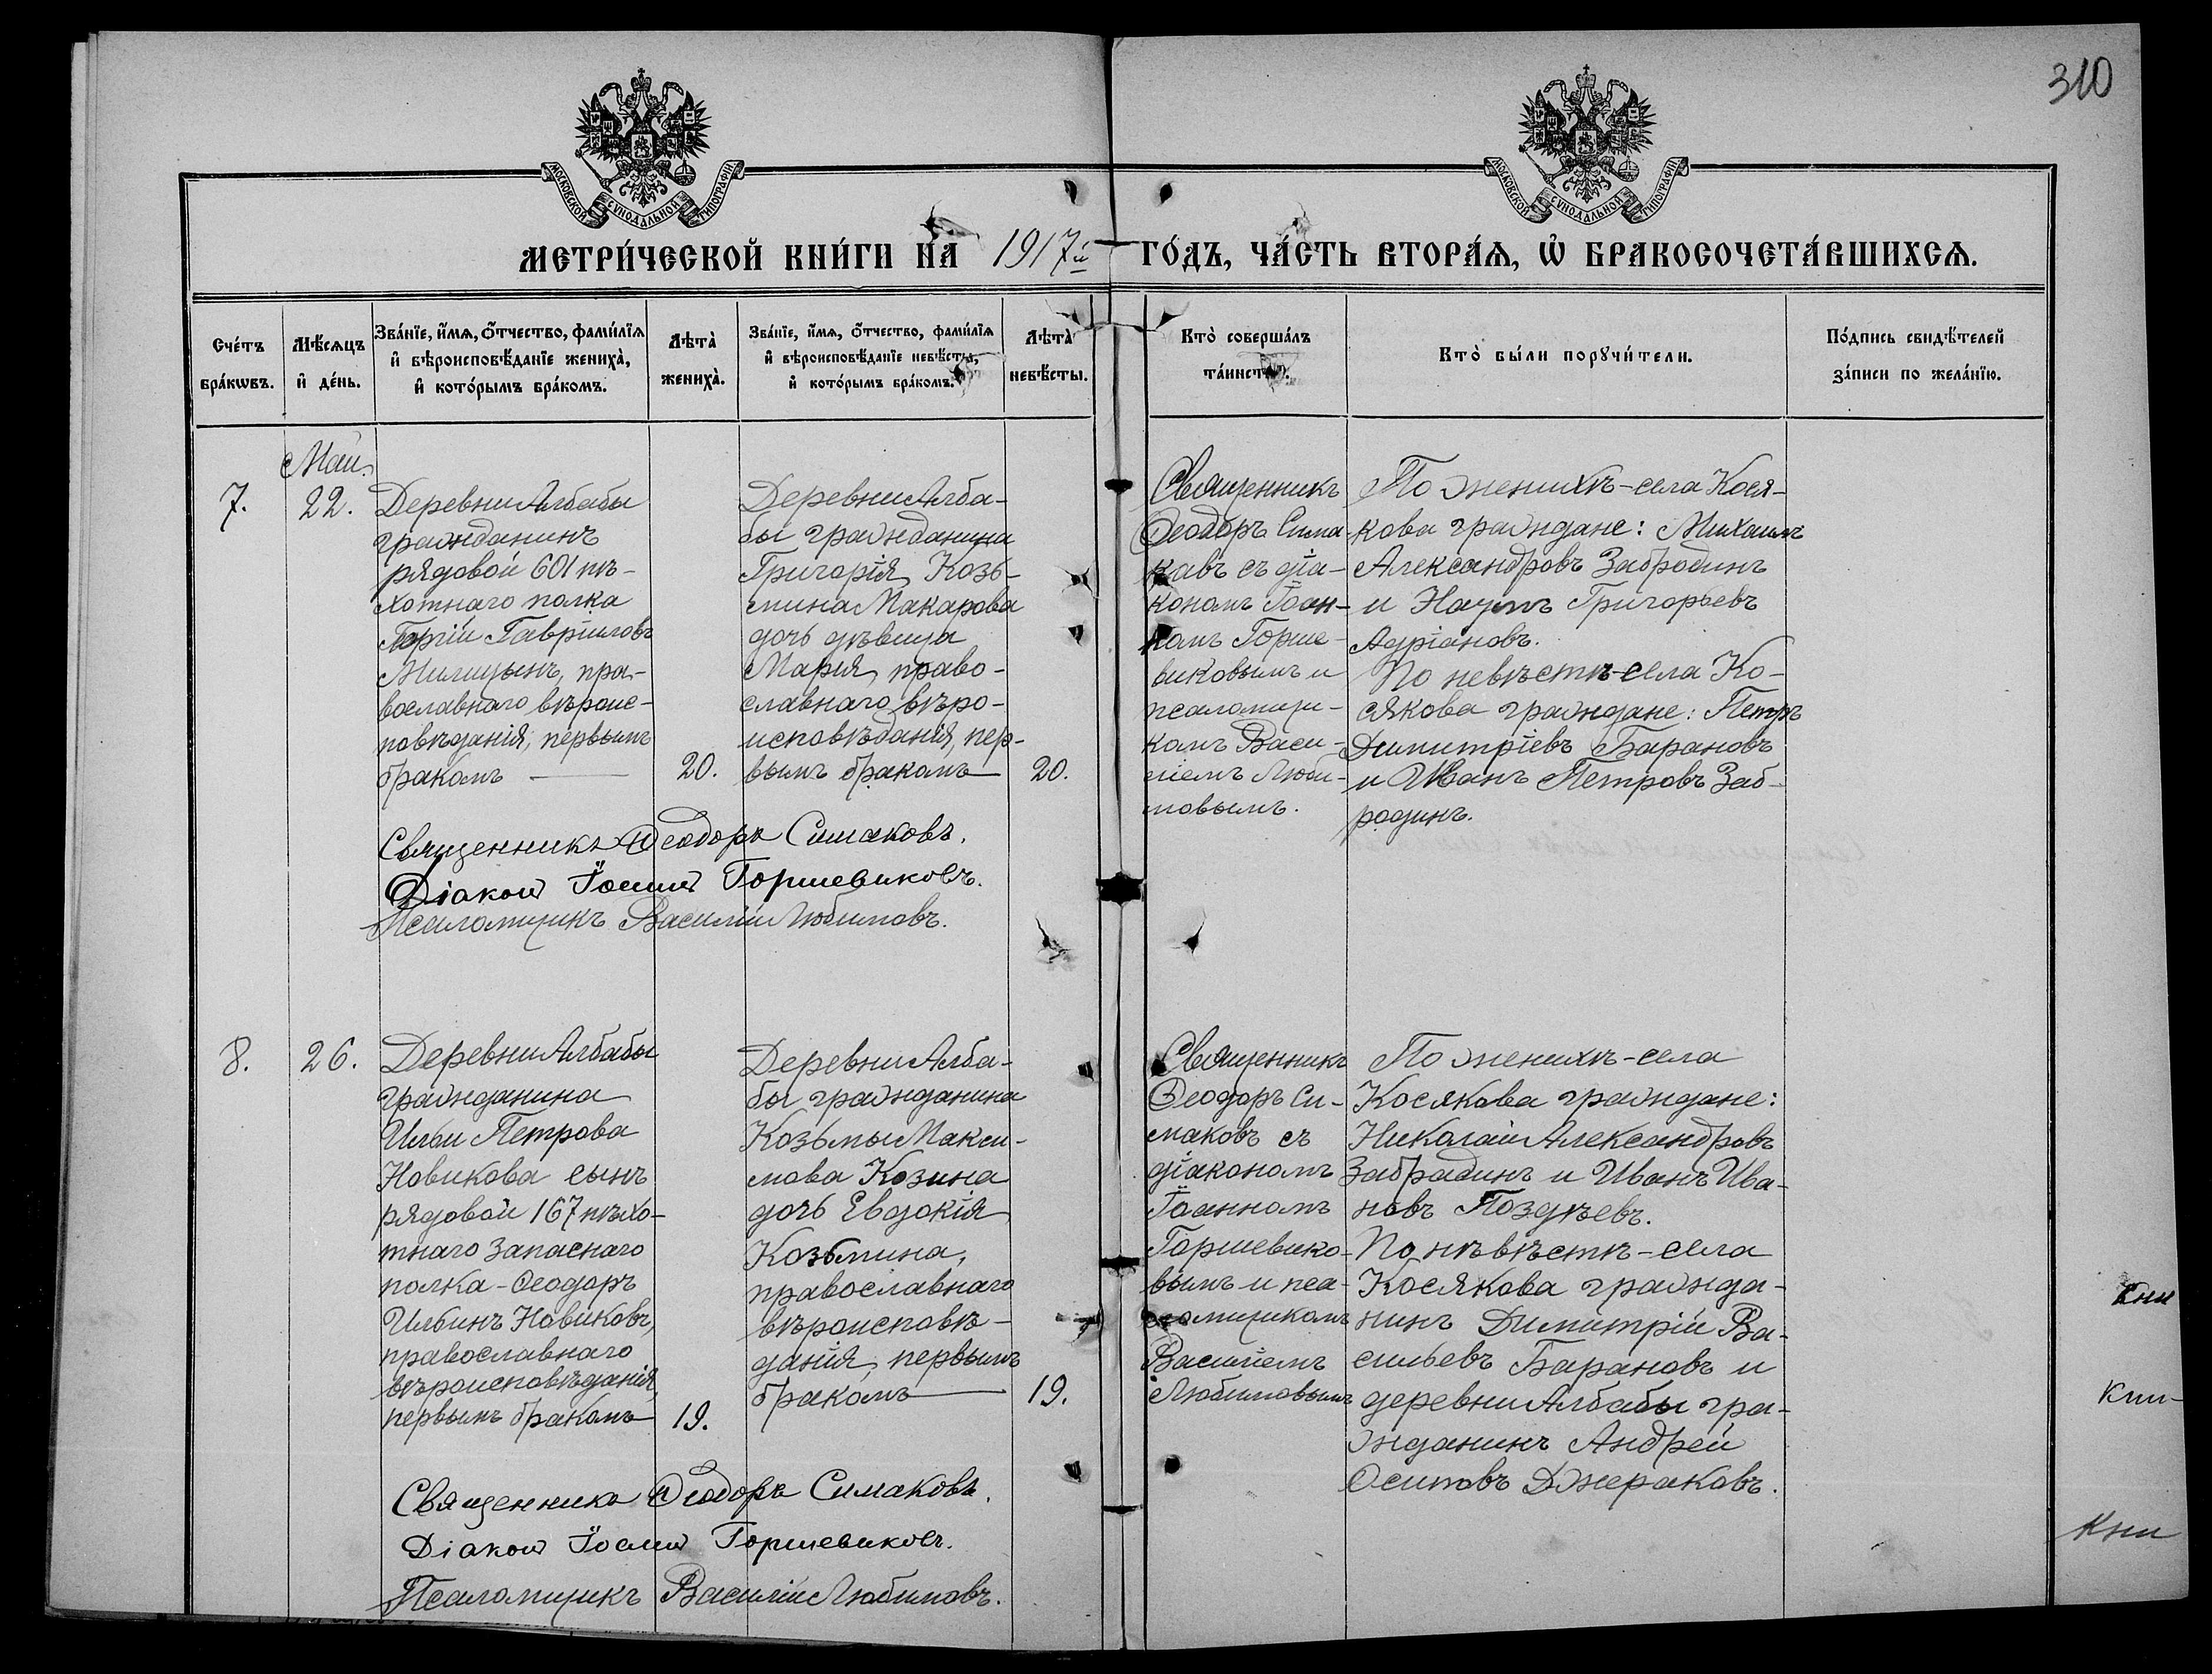 310
МОСКОВСКОЙ СУНОДАЛЬНОЙ ТИПОГРАФІИ
МОСКОВСКОЙ СУНОДАЛЬНОЙ ТИПОГРАФІИ
МЕТРИ́ЧЕСКОЙ КНИ́ГИ НА 1917й ГО́ДЪ, ЧА́СТЬ ВТОРА́Я, Ѡ҆ БРАКОСОЧЕТА́ВШИХСЯ.
Сче́тъ
бра́кѡвъ.
Мѣ́сяцъ
и҆ де́нь.
Зва́нїе, и҆́мя, ѻ҆́тчество, фами́лїя
и҆ вѣроисповѣ́данїе жениха̀,
и҆ кото́рымъ бра́комъ.
Лѣта̀
жениха̀.
Зва́нїе, и҆́мя, ѻ҆́тчество, фами́лїя
и҆ вѣроисповѣ́данїе невѣ́сты,
и҆ кото́рымъ бра́комъ.
Лѣта̀
невѣ́сты.
Кто̀ соверша́лъ
та́инство.
Кто̀ бы́ли порꙋчи́тели.
По́дпись свидѣ́телей
за́писи по жела́нїю.
7.
Май.
22.
Деревни Албабы
гражданинъ
рядовой 601 пѣ-
хотнаго полка
Гавріиловъ
Милицынъ, пра-
вославнаго вѣроис-
повѣданія, первымъ
бракомъ
20.
Деревни Алба-
бы гражданина
Григорія Козь-
мина Макарова
дочь дѣвица
Марія, право-
славнаго вѣро-
исповѣданія, пер-
вымъ бракомъ
20.
Священникъ
Ѳеодоръ Сима-
ковъ съ діа-
кономъ Іоан-
номъ Горше-
виковымъ и
псаломщи-
комъ Васи-
ліемъ Люби-
мовымъ.
По женихѣ - села Кося-
кова граждане: Михаилъ
Александровъ Забродинъ
и Наумъ Григорьевъ
Адріановъ.
По невѣстѣ - села Ко-
сякова граждане: Петръ
Димитріевъ Барановъ
и Иванъ Петровъ Заб-
родинъ.
Священникъ Ѳеодоръ Симаковъ.
Діаконъ Іоаннъ Горшевиковъ.
Псаломщикъ Василій Любимовъ.
8.
26.
Деревни Албабы
гражданина
Ильи Петрова
Новикова сынъ
рядовой 167 пѣхо-
тнаго запаснаго
полка - Ѳеодоръ
Ильинъ Новиковъ,
православнаго
вѣроисповѣданія,
первымъ бракомъ
19.
Деревни Алба-
бы гражданина
Козьмы Макси-
мова Козина
дочь Евдокія
Козьмина,
православнаго
вѣроисповѣ-
данія, первымъ
бракомъ
19.
Священникъ
Ѳеодоръ Си-
маковъ съ
діакономъ
Іоанномъ
Горшевико-
вымъ и пса-
ломщикомъ
Василіемъ
Любимовымъ
По женихѣ - села
Косякова граждане:
Николай Александровъ
Забрадинъ и Иванъ Ива-
новъ Поздѣевъ.
По нѣвѣстѣ - села
Косякова гражда-
нинъ Димитрій Ва-
сильевъ Барановъ и
деревни Албабы гра-
жданинъ Андрей
Осиповъ Джераковъ.
Священникъ Ѳеодоръ Симаковъ.
Діаконъ Іоаннъ Горшевиковъ.
Псаломщикъ Василій Любимовъ.
Кни
Кни-
Кни